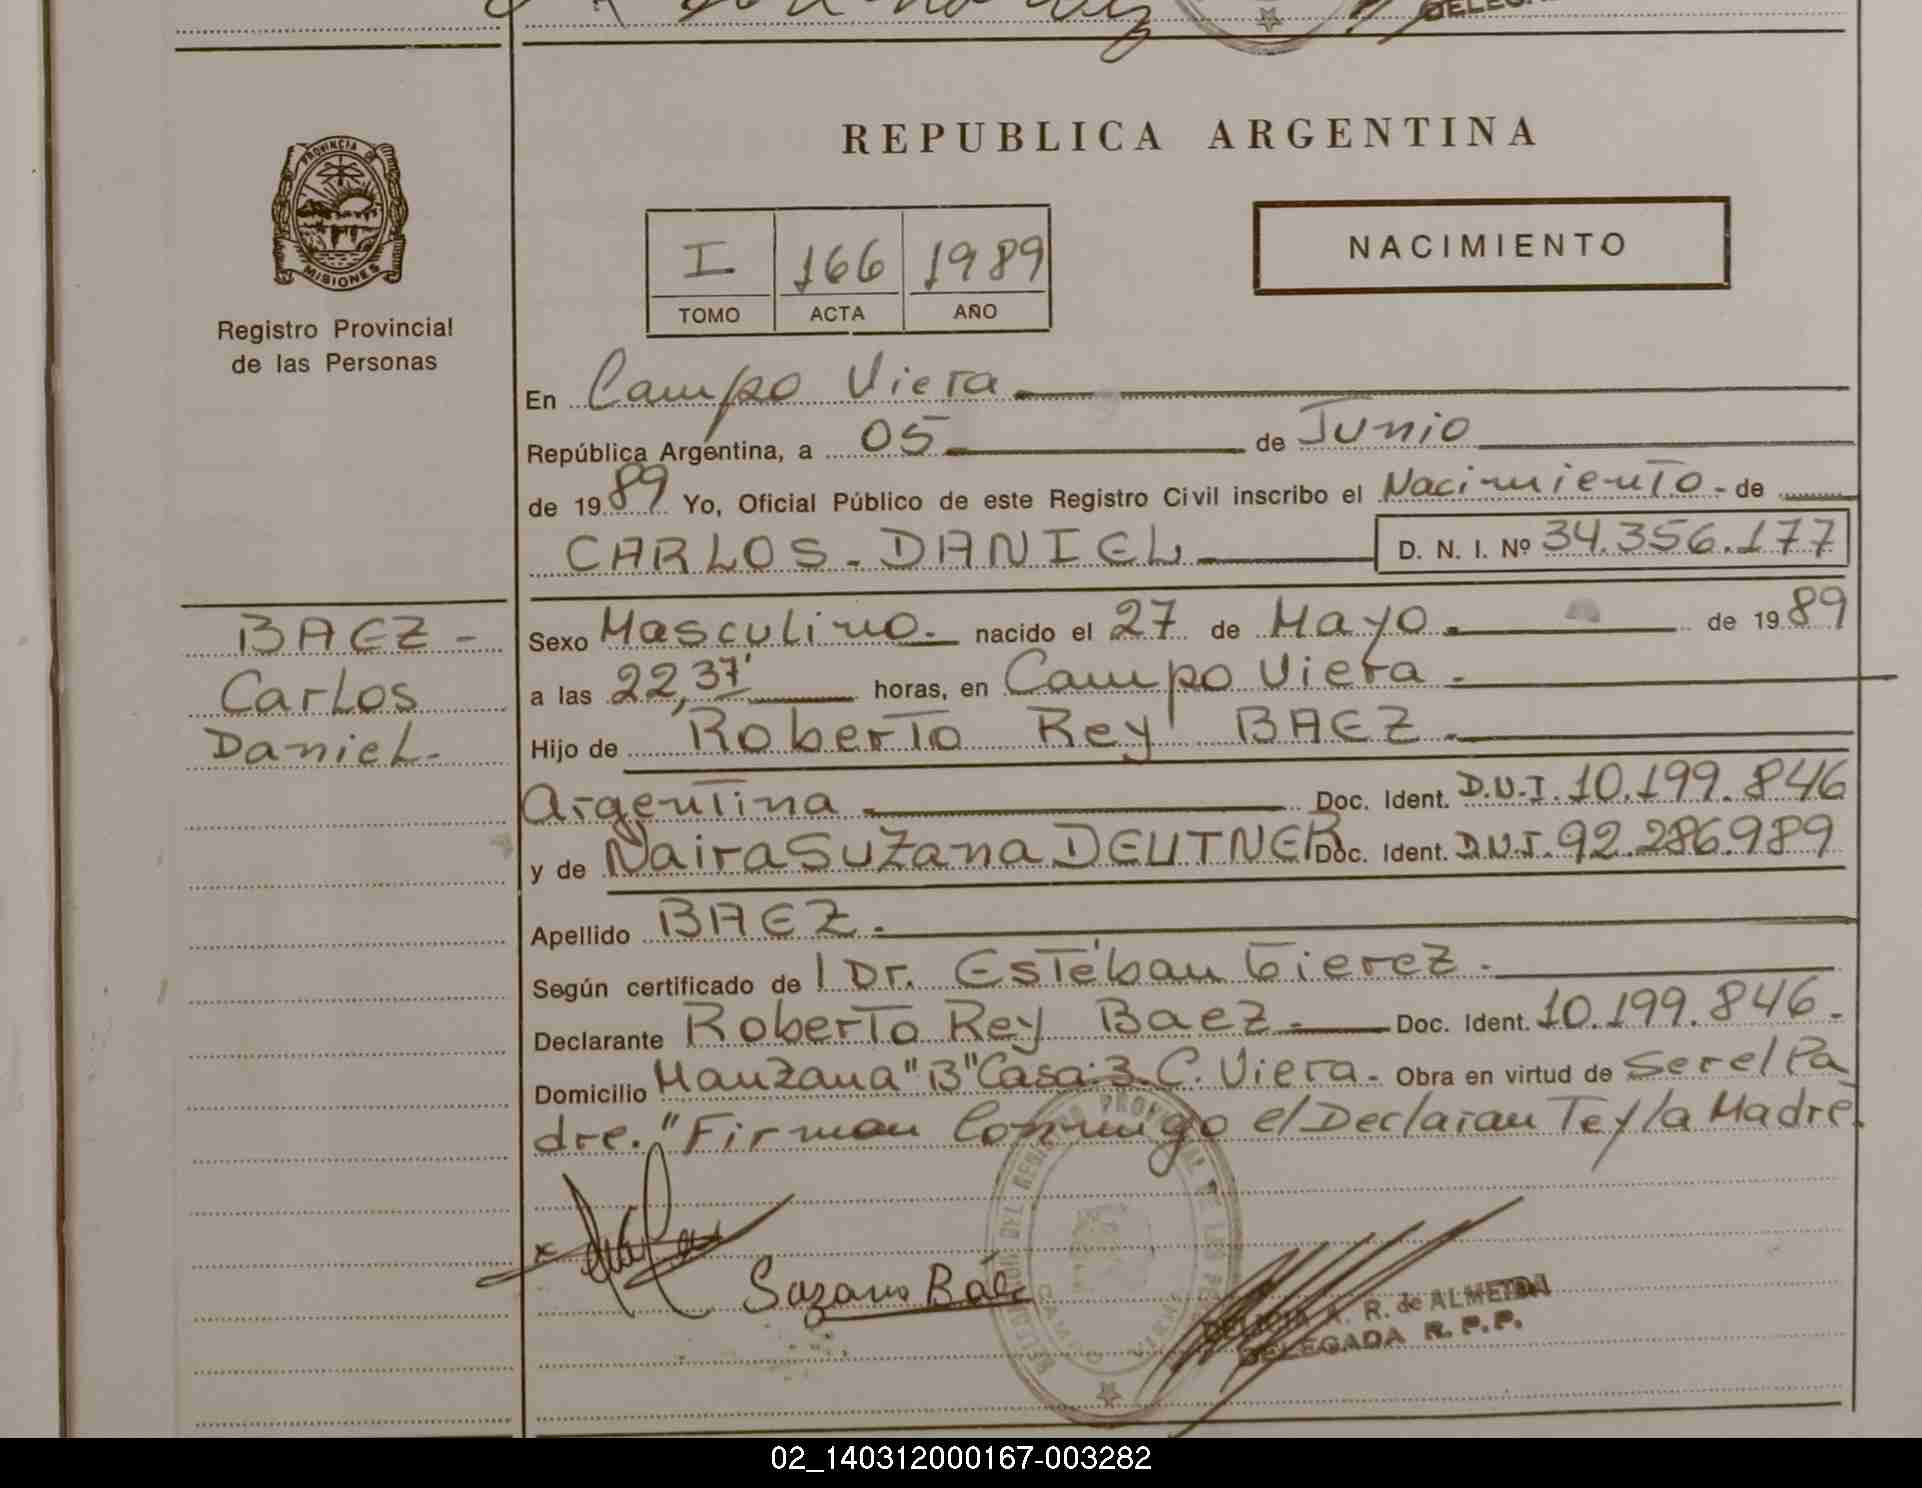 REPUBLICA ARGENTINA
PROVINCIA DE
MISIONES
Registro Provincial
de las Personas
I 166 1989
TOMO ACTA AÑO
NACIMIENTO
En Campo Viera
República Argentina, a 05 de Junio
de 1989 Yo, Oficial Público de este Registro Civil inscribo el Nacimiento - de
CARLOS - DANIEL D. N. I. Nº 34.356.177
BAEZ -
Carlos
Daniel.
Sexo Masculino. nacido el 27 de Mayo. de 1989
a las 22,37' horas, en Campo Viera.
Hijo de Roberto Rey BAEZ.
Argentina Doc. Ident. D.N.I. 10.199.846
y de Naira Suzana DEUTNER Doc. Ident. D.N.I. 92.286.989
Apellido BAEZ.
Según certificado de l Dr. Estéban Gierez.
Declarante Roberto Rey Baez. Doc. Ident. 10.199.846.
Domicilio Manzana "B" Casa:3. C. Viera. Obra en virtud de Ser el Pa
dre." Firman Conmigo el Declaran Te y la Madre.
Suzana Báez
DELICIA A. R. de ALMEIDA
DELEGADA R.P.P.
02_140312000167-003282